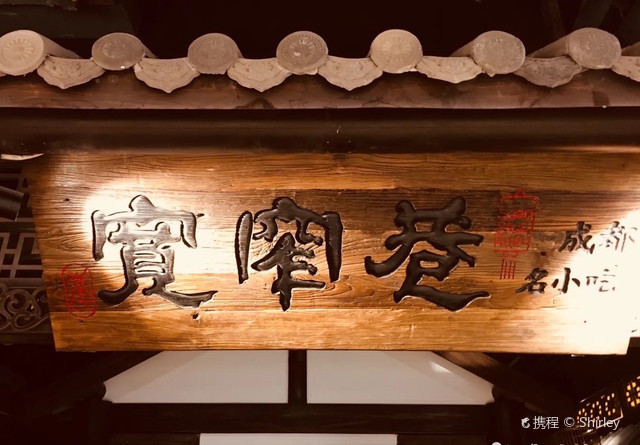 寬窄巷
成都
名小吃
携程 © Shirley